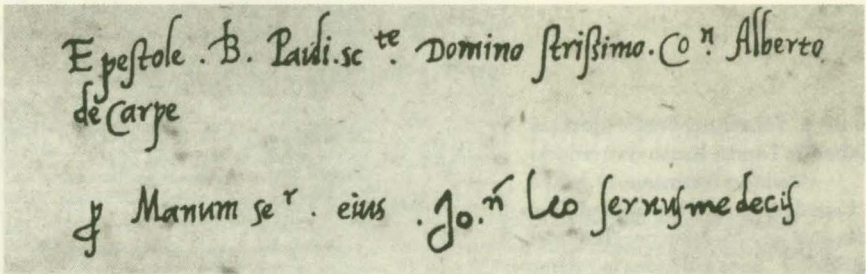 Epestole . B. Pauli. sc te. Domino strissimo. Co n. Alberto
de Carpe
p Manum se r. eius . Jo. n Leo servus medecis